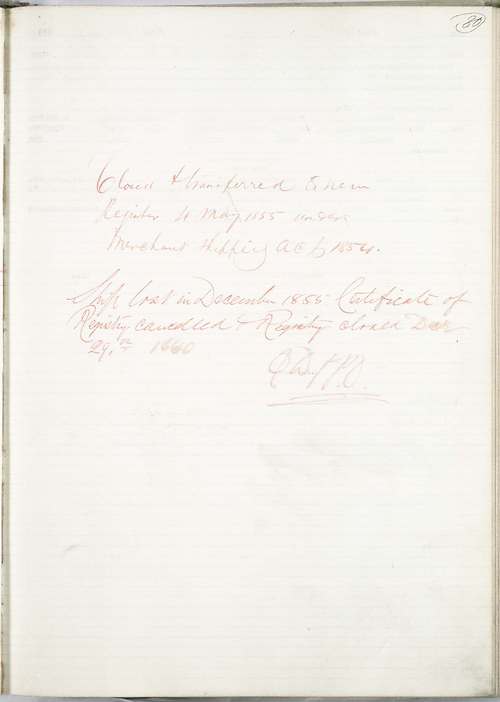 80
Closed & transferred to new
Register 4 May 1855 under
Merchant Shipping Act 1854.
Ship lost in December 1855 Certificate of
Registry cancelled & Registry closed Dec
29th 1860